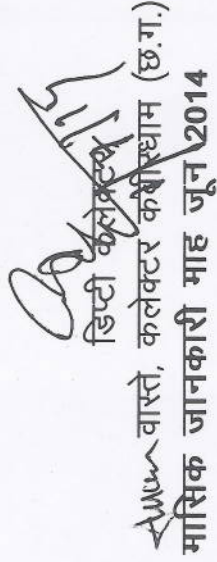 डिप्टी कलेक्टर
वास्ते, कलेक्टर कबीरधाम (छ.ग.)
मासिक जानकारी माह जून 2014